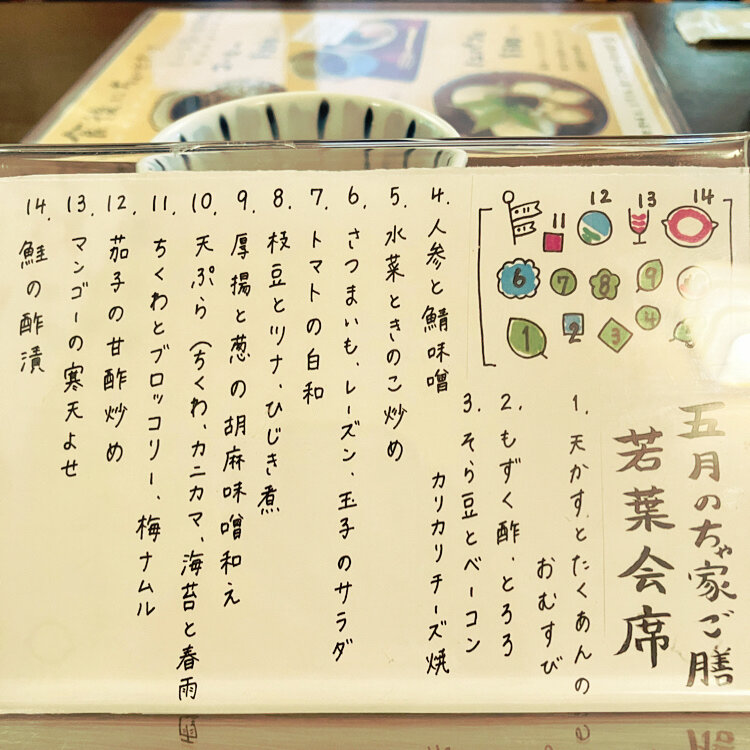 五月のちゃ家ご膳
若葉会席
11 12 13 14
6 7 8 9
1 2 3 4
1. 天かすとたくあんの
おむすび
2. もずく酢、とろろ
3. そら豆とベーコン
カリカリチーズ焼
4. 人参と鯖味噌
5. 水菜ときのこ炒め
6. さつまいも、レーズン、玉子のサラダ
7. トマトの白和
8. 枝豆とツナ、ひじき煮
9. 厚揚と葱の胡麻味噌和え
10. 天ぷら(ちくわ、カニカマ、海苔と春雨
11. ちくわとブロッコリー、梅ナムル
12. 茄子の甘酢炒め
13. マンゴーの寒天よせ
14. 鮭の酢漬